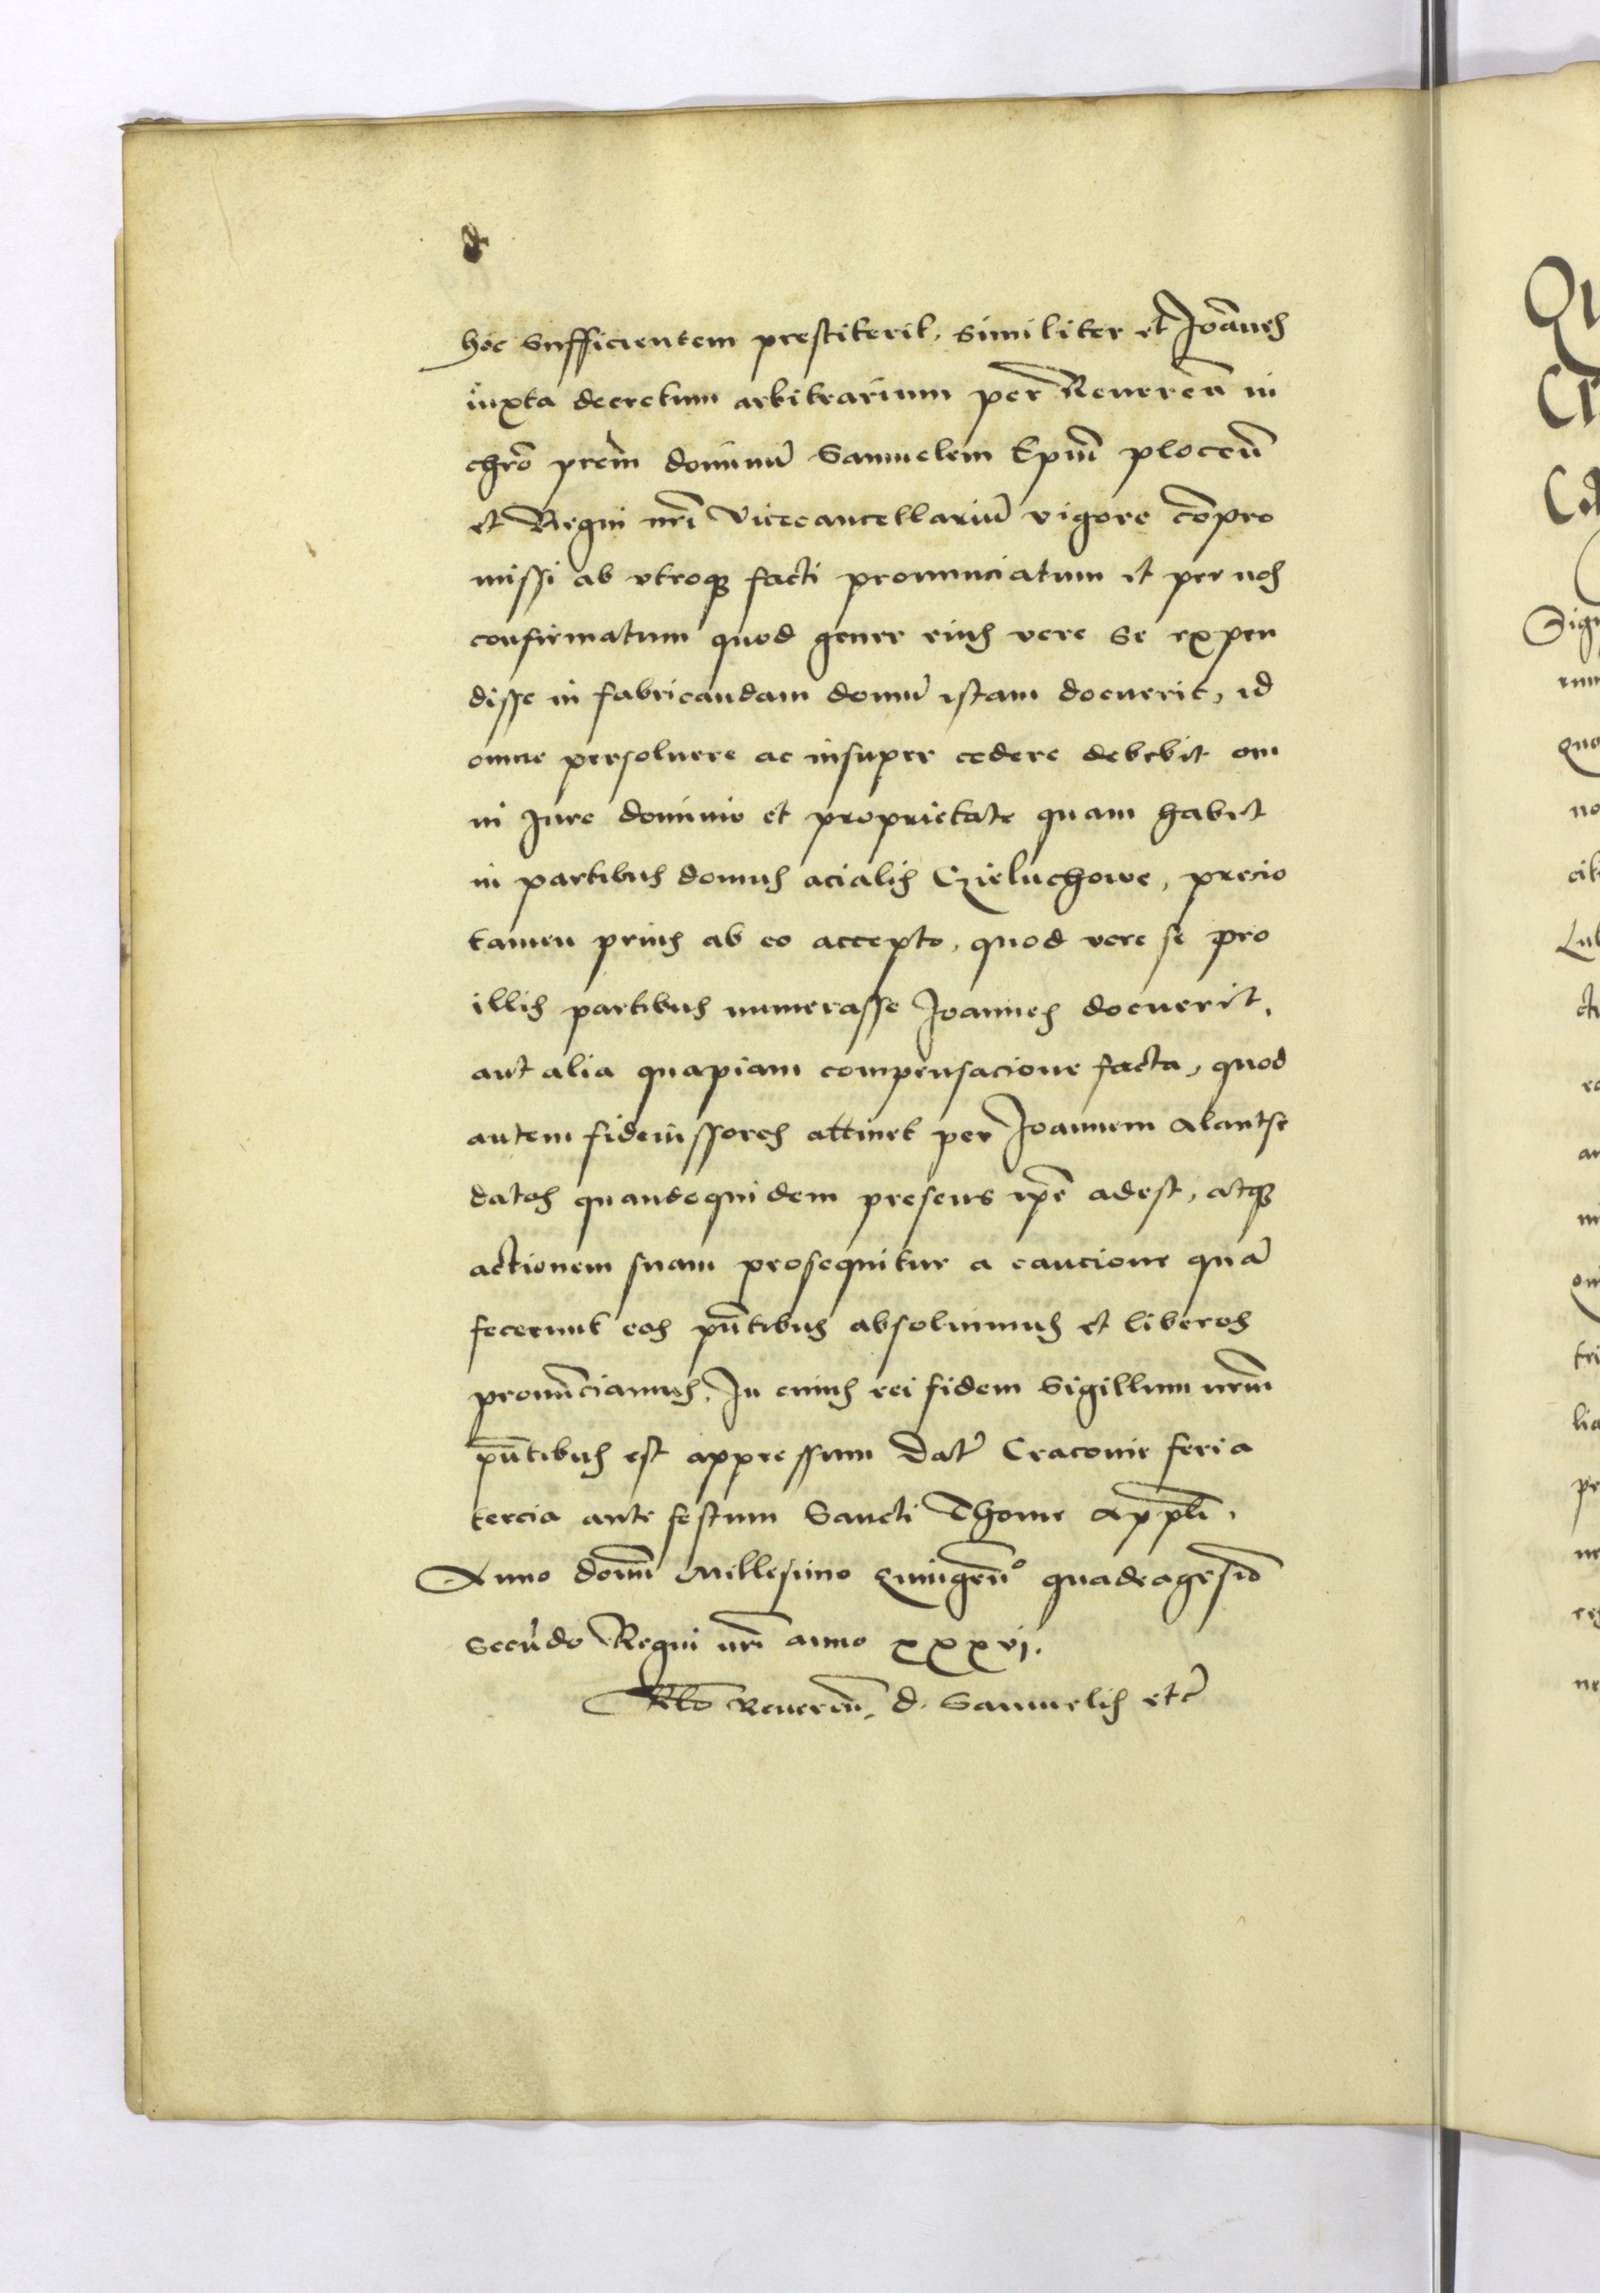 hoc sufficientem prestiterit, similiter et Joānes
iuxta decretum arbitrarium per Reuerēn in
chrō prēm dominū Samuelem Epīm plocēn
et Regni nrī Vicecancellariū vigore cōpro
missi ab vtroq facti pronunciatum et per nos
confirmatum quod genere eius vere se expen
disse in fabricandam domū istam docuerit, id
omne persoluere ac insuper cedere debebit om
ni Jure dominio et proprietate quam habet
in partibus domus acialis Czieluchowe, precio
tamen prius ab eo accepto, quod vere se pro
illis partibus numerasse Joannes docuerit,
aut alia quapiam compensacione facta, quod
autem fideiussores attinet per Joannem Alantse
datos quandoquidem presens ipē adest, atq
actionem suam prosequitur a caucione quā
fecerunt eos pñtibus absoluimus et liberos
pronūnciamus. In cuius rei fidem Sigillum nrm̄
pñtibus est appressum Datˀ Cracouie feria
tercia ante festum Sancti Thome Appłi.
Anno domī Millesimo Quingenº quadragesīo
secūdo Regni nrī anno xxxvj.
Rłō Reuerēn, d. Samuelis etc̄
Qu